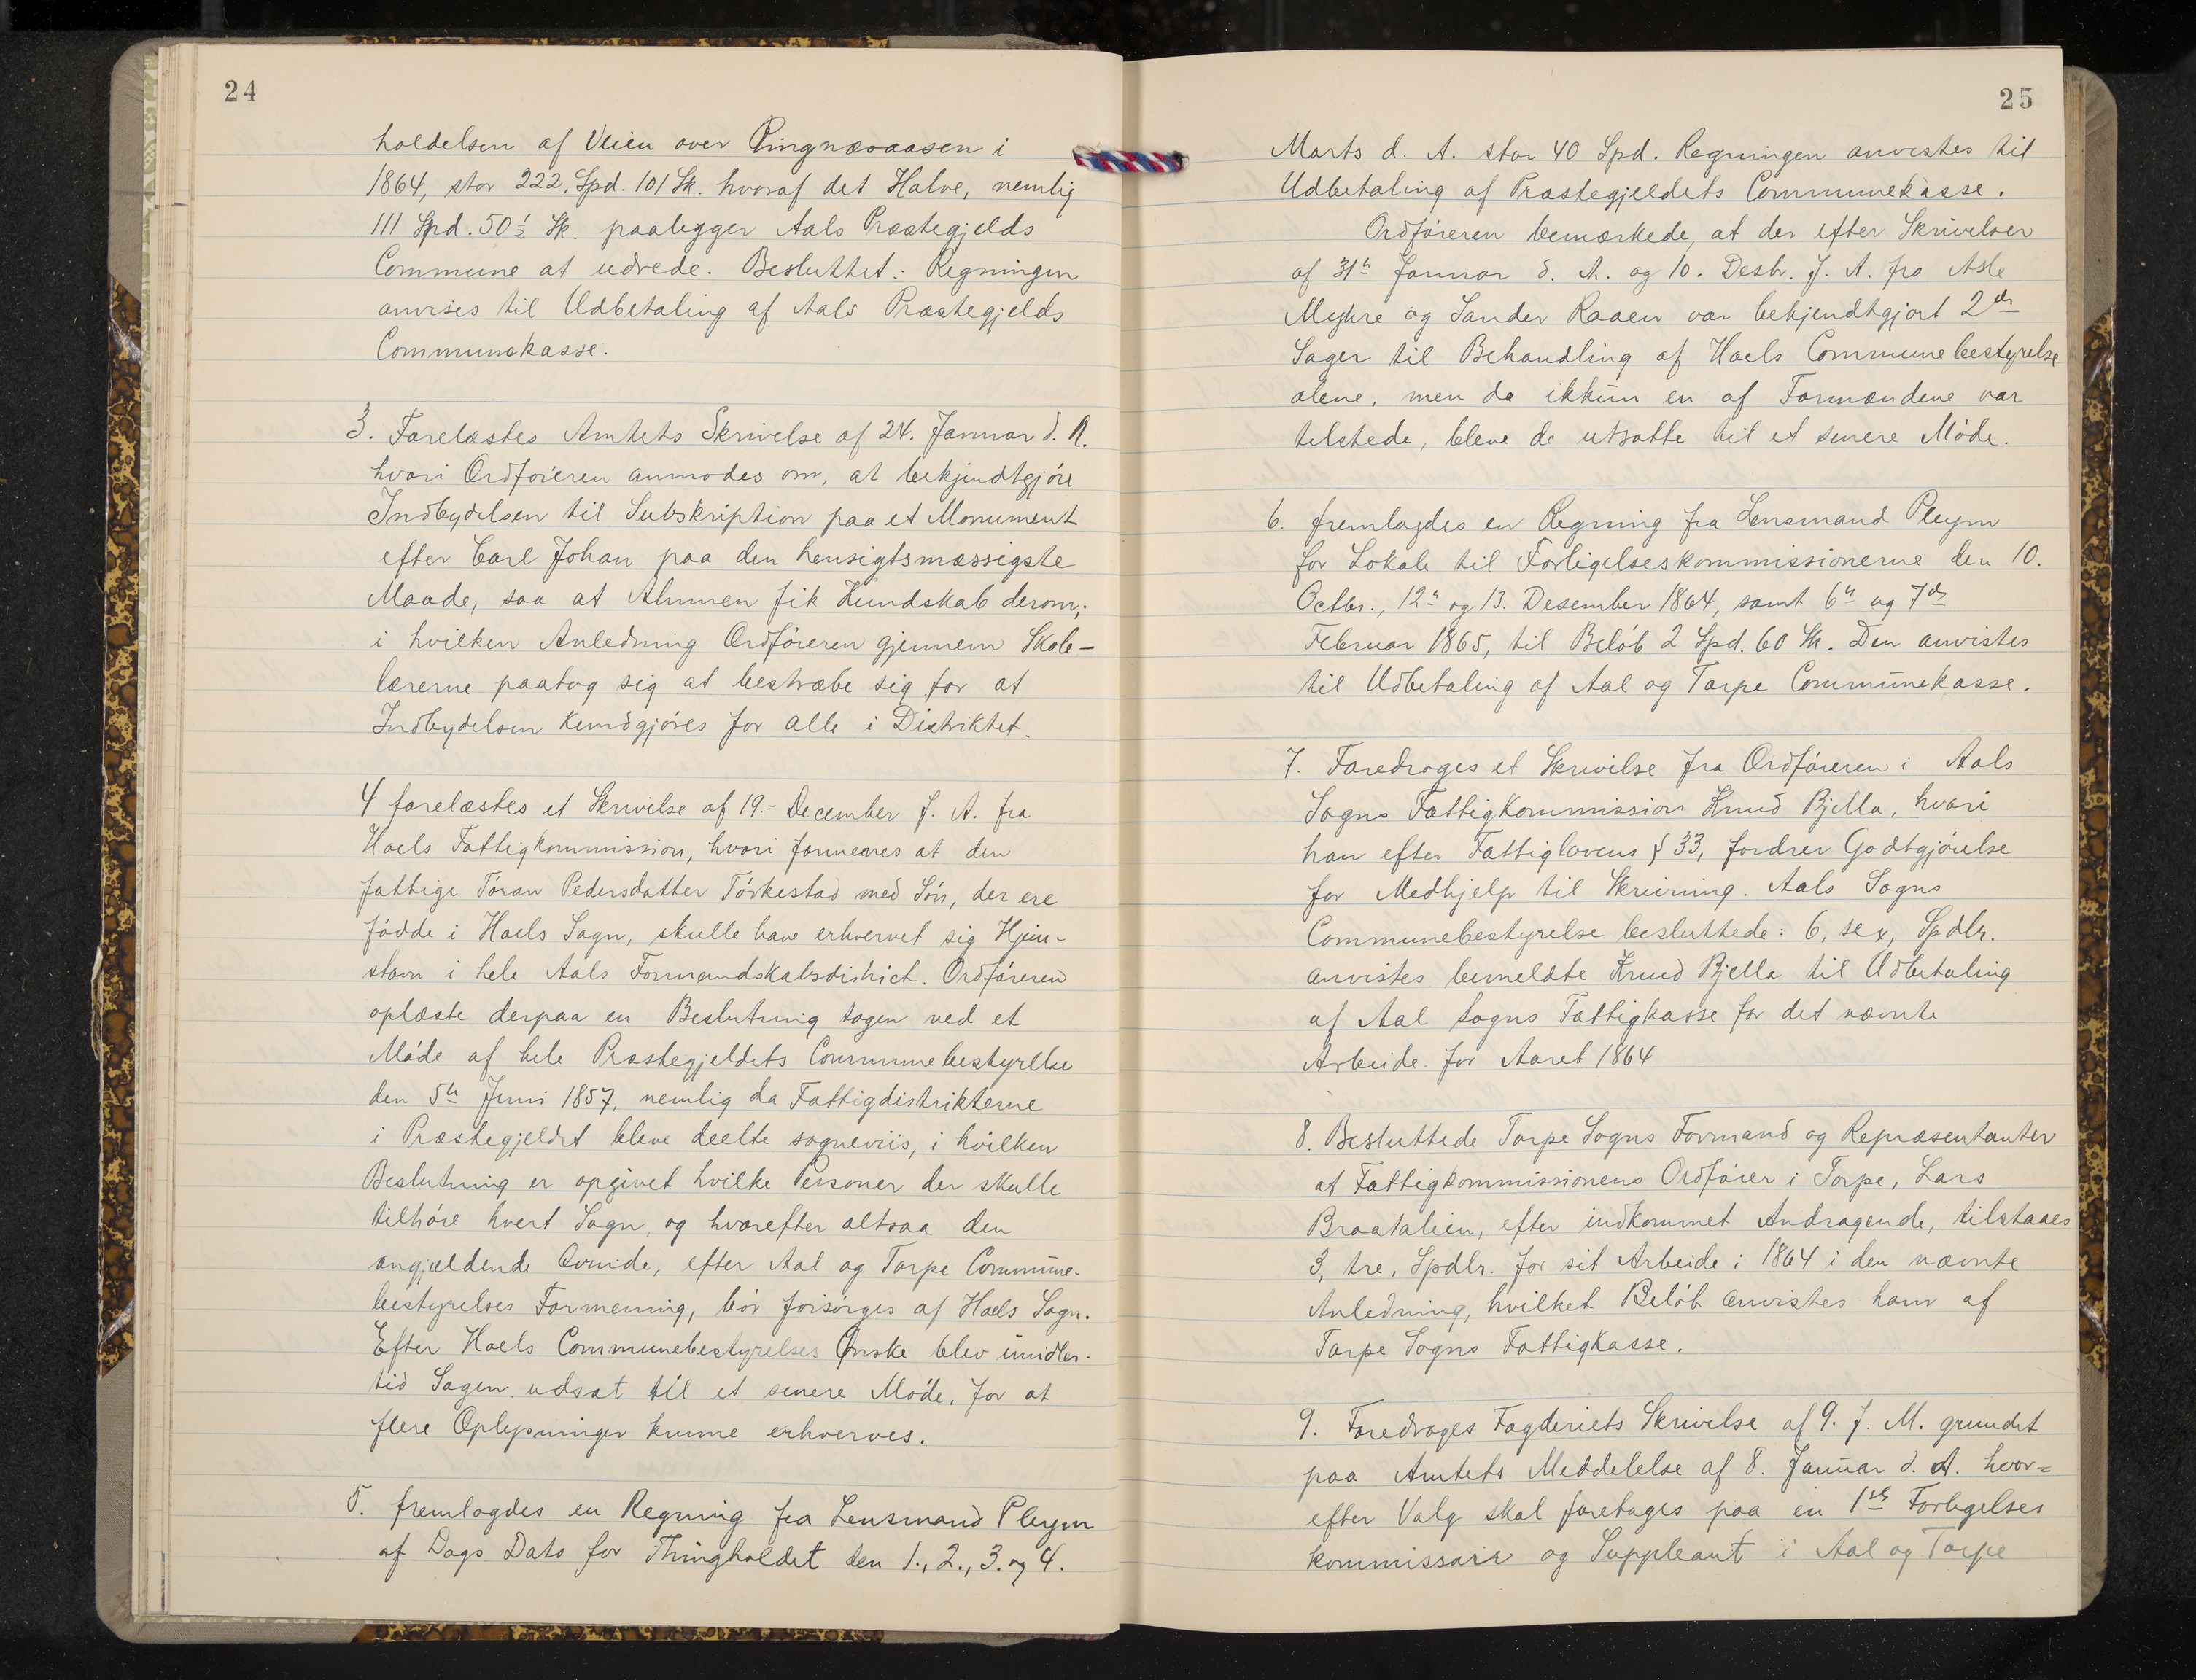 24
holdelsen af Veien over Ringnæsaasen i
1864, stor 222, Spd. 101 Sk. hvoraf det Halve, nemlig
111 Spd. 50½ Sk. paalegger Aals Præstegjelds
Commune at udrede. Besluttet: Regningen
anvises til Udbetaling af Aals Præstegjelds
Communekasse.
3. Forelæstes Amtets Skrivelse af 24. Januar d. A.
hvori Ordføreren anmodes om, at bekjendtgjöre
Indbydelsen til Subskription paa et Monument
efter Carl Johan paa den hensigtsmæssigste
Maade, saa at Almuen fik Kundskab derom;
i hvilken Anledning Ordföreren gjennem Skole-
lærerne paatog sig at bestræbe sig for at
Indbydelsen kundgjöres for alle i Distriktet.
4 forelæstes et Skrivelse af 19.- December f. A. fra
Hoels Fattigkommission, hvori formenes at den
fattige Töran Pedersdatter Törkestad med Sön, der ere
födde i Hoels Sogn, skulle have erhvervet sig Hjem-
stavn i hele Aals Formandskabsdistrict. Ordföreren
oplæste derpaa en Beslutning tagen ved et
Möde af hele Præstegjeldets Communebestyrelse
den 5te Juni 1857, nemlig da Fattigdistrikterne
i Præstegjeldet bleve deelte sogneviis, i hvilken
Beslutning er opgivet hvilke Personer der skulle
tilhöre hvert Sogn, og hvorefter altsaa den
angjældende Qvinde, efter Aal og Torpe Commune-
bestyrelses Formening, bör forsörges af Hoels Sogn.
Efter Hoels Communebestyrelses Ønske blev imidler-
tid Sagen udsat til et senere Möde, for at
flere Oplysninger kunne erhverves.
5. fremlagdes en Regning fra Lensmand Pleym
af Dags Dato for Thingholdet den 1., 2., 3. og 4.
25
Marts d. A. stor 40 Spd. Regningen anvistes til
Udbetaling af Præstegjeldets Communekasse.
Ordföreren bemærkede, at der efter Skrivelser
af 31te Januar d. A. og 10. Desbr. f. A. fra Asle
Myhre og Sander Raaen var bekjendtgjort 2de
Sager til Behandling af Hoels Communebestyrelse
alene, men da ikkun en af Formændene var
tilstede, bleve de utsatte til et senere Möde.
6. fremlagdes en Regning fra Lensmand Pleym
for Lokale til Forligelseskommissionerne den 10.
Octbr., 12te og 13. Desember 1864, samt 6te og 7de
Februar 1865, til Belöb 2 Spd. 60 Sk. Den anvistes
til Udbetaling af Aal og Torpe Communekasse.
7. Foredroges et Skrivelse fra Ordföreren i Aals
Sogns Fattigkommission Knud Bjella, hvori
han efter Fattiglovens § 33, fordrer Godtgjörelse
for Medhjelp til Skrivning. Aals Sogns
Communebestyrelse besluttede: 6, sex, Spdlr.
anvistes bemeldte Knud Bjella til Udbetaling
af Aal Sogns Fattigkasse for det nævnte
Arbeide for Aaret 1864
8. Besluttede Torpe Sogns Formand og Repræsentanter
at Fattigkommissionens Ordförer i Torpe, Lars
Braatalien, efter indkommet Andragende, tilstaaes
3, tre, Spdlr. for sit Arbeide i 1864 i den nævnte
Anledning, hvilket Belöb anvistes ham af
Torpe Sogns Fattigkasse.
9. Foredroges Fogderiets Skrivelse af 9. f. M. grundet
paa Amtets Meddelelse af 8. Januar d. A. hvor=
efter Valg skal foretages paa en 1ste Forligelses
kommissair og Suppleant i Aal og Torpe